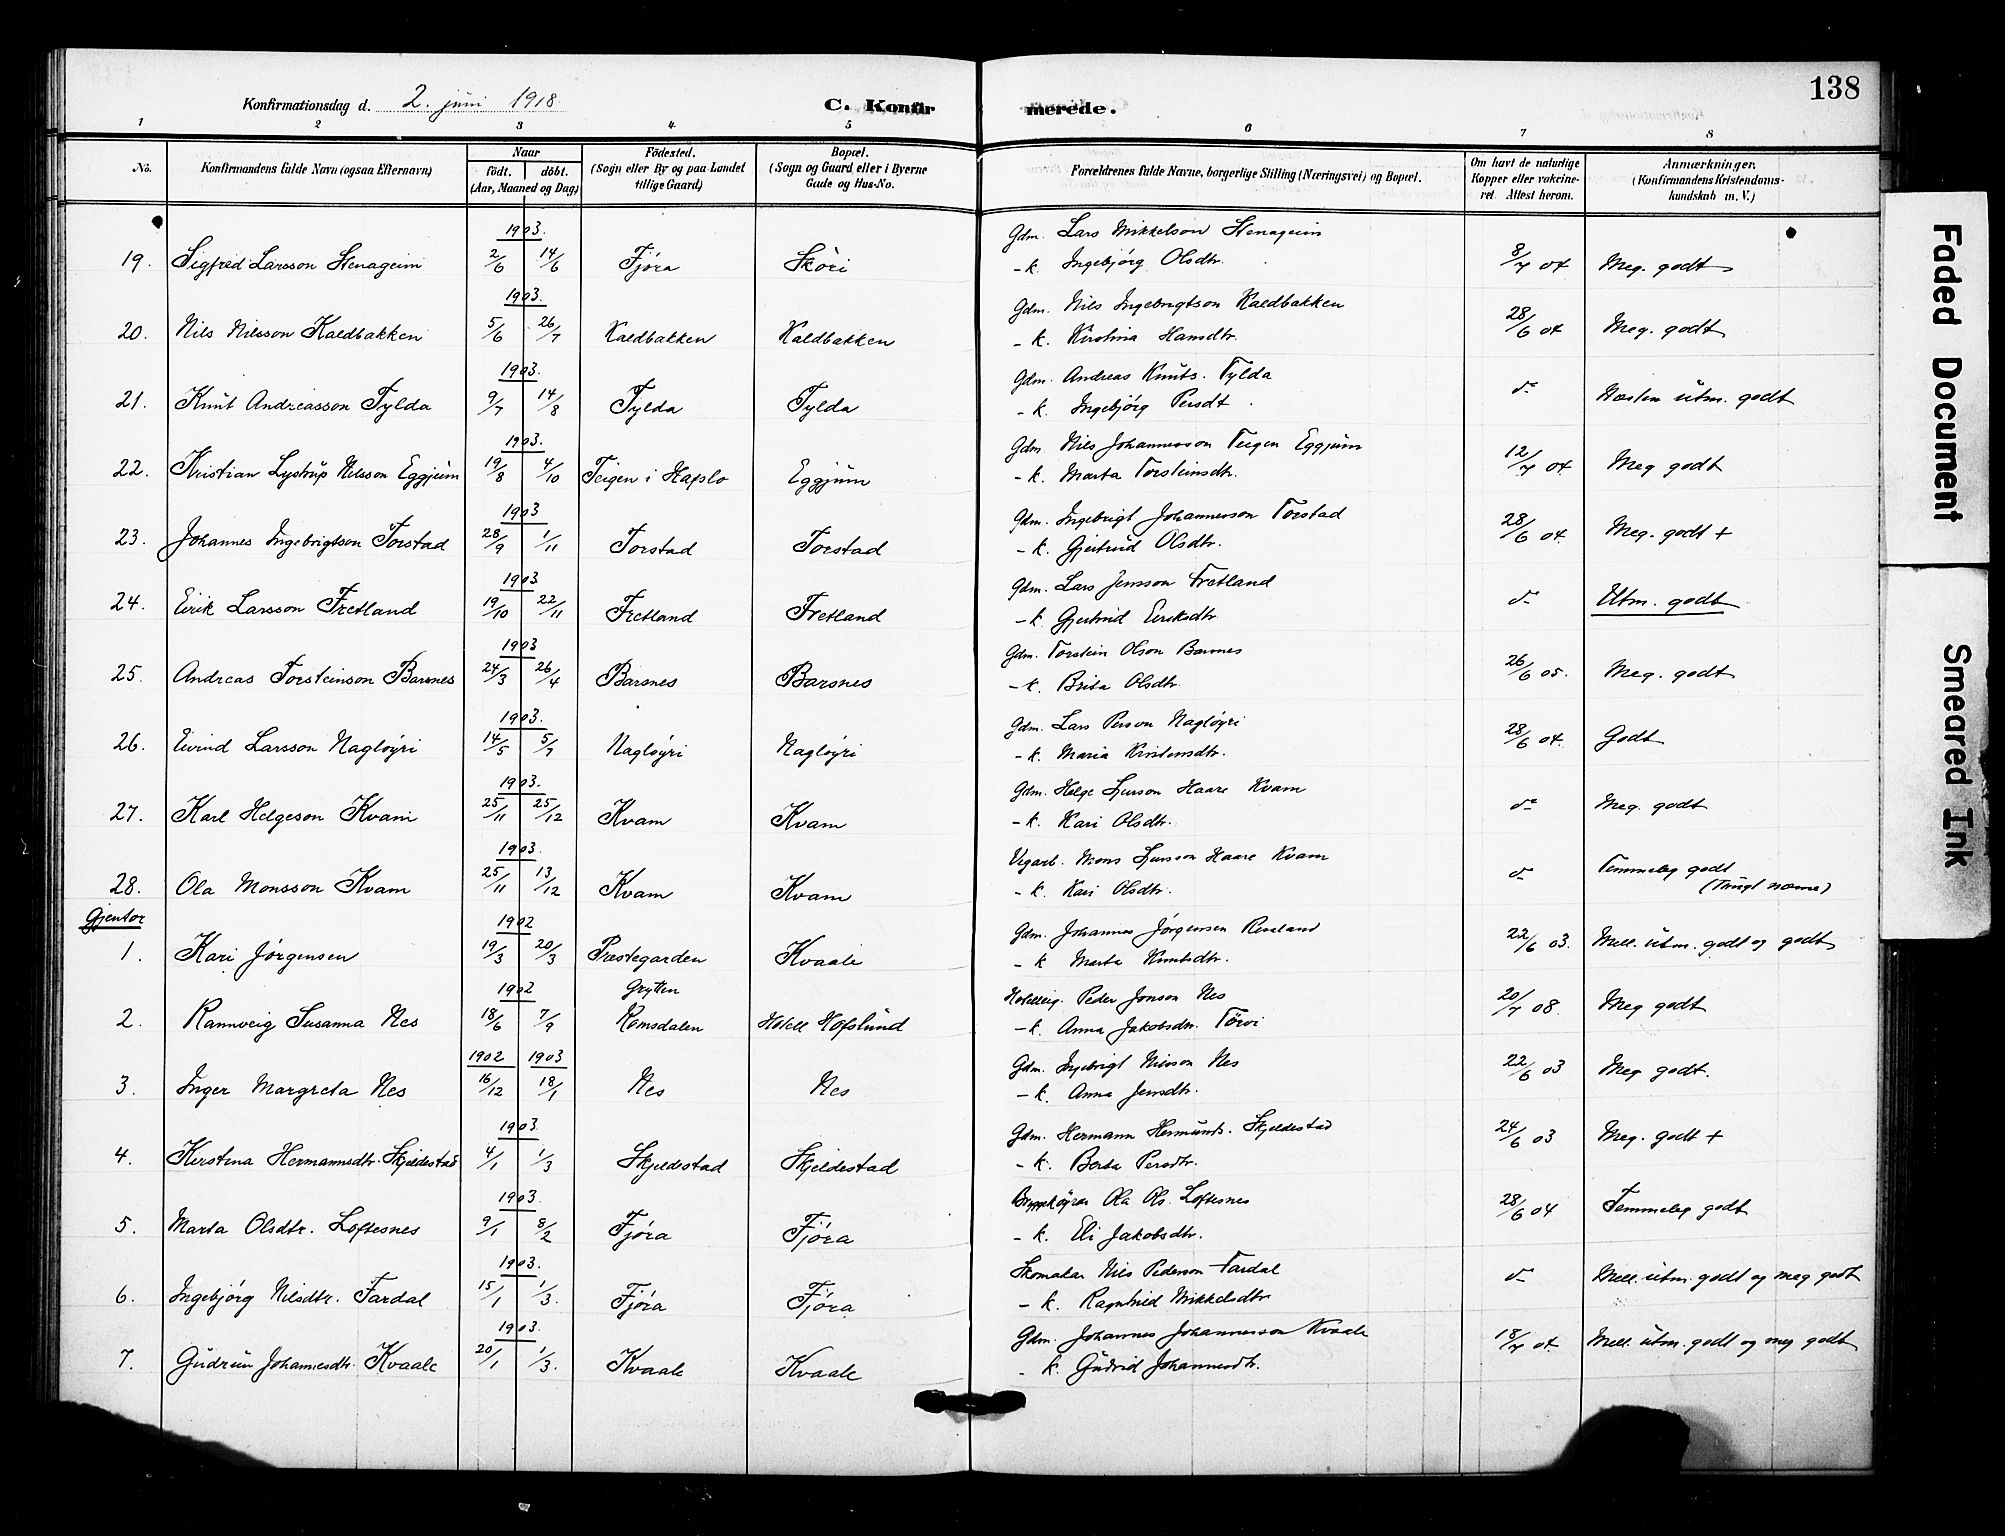 138
Konfirmationsdag d. 2. juni 1918
C. Konfirmerede.
1 2 3 4 5 6 7 8
No. Konfirmandens fulde Navn (ogsaa Efternavn) Naar født. døbt. (Aar, Maaned og Dag) Fødested. (Sogn eller By og paa Landet tillige Gaard) Bopæl. (Sogn og Gaard eller i Byerne Gade og Hus-No. Forældrenes fulde Navne, borgerlige Stilling (Næringsvei) og Bopæl. Om havt de naturlige Kopper eller vakcineret. Attest herom. Anmærkninger. (Konfirmandens Kristendomskundskab m. V.)
19. Sigfred Larsson Stenageim 1903. 2/6 14/6 Fjøra Skóri Gdm. Lars Mikkelson Stenageim
- k. Ingebjörg Olsdtr. 8/7 04 Meg. godt
20. Nils Nilsson Kaldbakken 1903. 5/6 26/7 Kaldbakken Kaldbakken Gdm. Nils Ingebrigtson Kaldbakken
- k. Kristina Hansdtr. 28/6 04 Meg. godt
21. Knut Andreasson Fylda 1903. 9/7 14/8 Fylda Fylda Gdm. Andreas Knuts. Fylda
- k. Ingebjörg Persdt. do Næsten utm. godt
22. Kristian Lystrup Nilsson Eggjum 1903. 19/8 4/10 Teigen i Hafslo Eggjum Gdm Nils Johannesson Teigen Eggjum
- k. Marta Torsteinsdtr. 12/7 04 Meg godt
23. Johannes Ingebrigtson Torstad 1903 28/9 1/11 Torstad Torstad Gdm. Ingebrigt Johannesson Torstad
- k. Gjertrud Olsdtr. 28/6 04. Meg. godt +
24. Eirik Larsson Fretland 1903 19/10 22/11 Fretland Fretland Gdm. Lars Jensson Fretland
- k. Gjertrud Eiriksdtr. do Utm. godt
25. Andreas Torsteinson Barsnes 1903 24/3 26/4 Barsnes Barsnes Gdm. Torstein Olson Barsnes
- k. Brita Olsdtr. 26/6 05. Meg. godt
26. Eivind Larsson Nagløyri 1903. 14/5 5/7 Nagløyri Nagløyri Gdm. Lars Person Nagløyri
- k. Maria Kristensdtr. 28/6 04. Godt
27. Karl Helgeson Kvam 1903. 25/11 25/12 Kvam Kvam Gdm. Helge Sjurson Haare Kvam
- k. Kari Olsdtr. do Meg. godt
28. Ola Monsson Kvam 1903. 25/11 13/12 Kvam Kvam Vegarb. Mons Sjursson Haare Kvam
- k. Kari Olsdtr. do Temmeleg godt
(Tungt næme)
Gjentor
1. Kari Jørgensen 1902 19/3 20/3 Prestegarden Kvaale Gdm. Johannes Jørgensen
- k Marta Knutsdtr. 22/6 03. Mell. utm. godt og godt
2. Rannveig Susanna Nes 1902 18/6 7/9 Grytten Romsdalen Hotell Hofslund Hotelleig. Peder Jonson Nes
- k. Anna Jakobsdtr. Törvi 20/7 08. Meg godt
3. Inger Margreta Nes 1902 1903 16/12 18/1 Nes Nes Gdm. Ingebrigt Nilsson Nes
- k. Anna Jensdtr. 22/6 03 Meg godt.
4. Kirstina Hermannsdtr. Skjeldestad 1903. 4/1 1/3 Skjeldestad Skjeldestad Gdm. Hermann Hermunds. Skjeldestad
- k. Berta Persdtr. 24/6 03 Meg. godt +
5. Marta Olsdtr. Loftesnes 1903. 9/1 8/2 Fjøra Fjøra Ola Ols. Loftesnes
- k. Eli Jakobsdtr. 28/6 04 Temmeleg godt
6. Ingebjörg Nilsdtr. Fardal 1903. 15/1 1/3. Fjøra Fjøra Skomakar Nils Pederson Fardal
- k. Ragnhild Mikkelsdtr do Mell. utm. godt og meg godt
7. Gudrun Johannesdtr. Kvaale 1903. 20/1 1/3. Kvaale Kvaale Gdm. Johannes Johannesson Kvaale
- k. Gudrid Johannesdtr. 18/7 04. Mell. utm. godt og meg godt
Faded Document
Smeared Ink